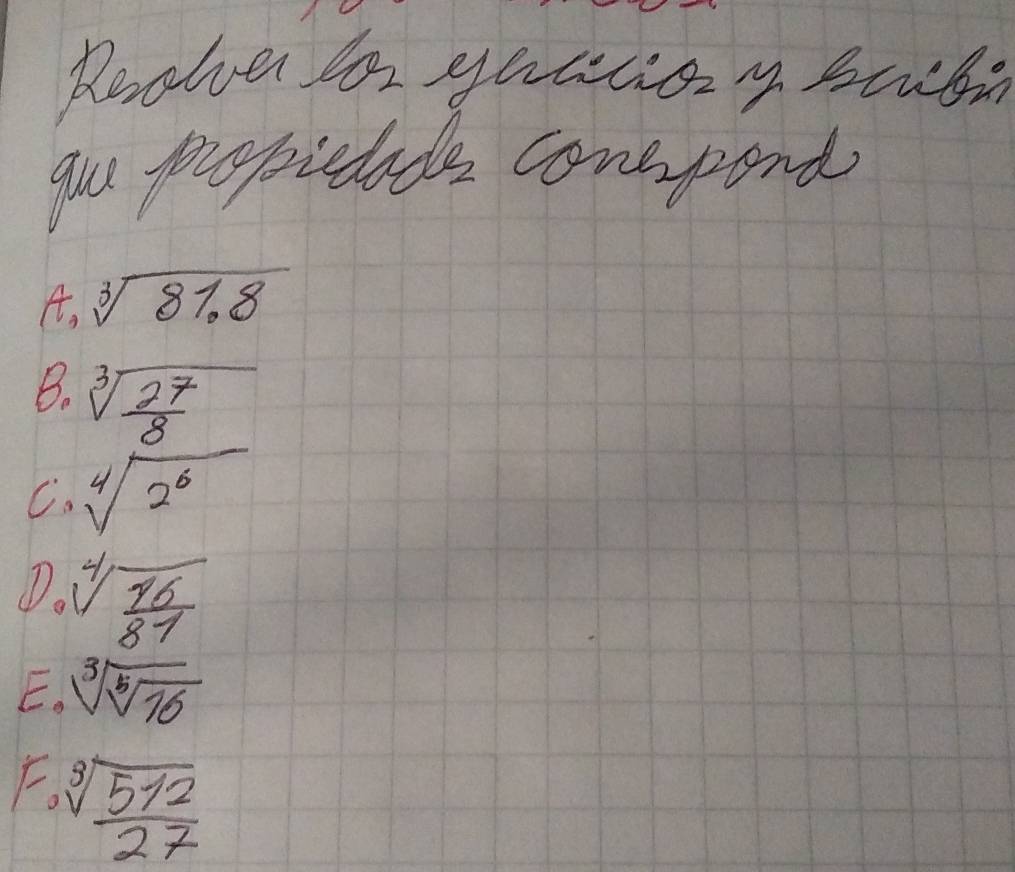 Resolver los ejercicios y scribir
que propiedades correspond
A. ∛81.8
B. ∛(27/8)
C. ∜2⁶
D. ∜(16/81)
E. ∛⁵√16
F. ∛(512/27)